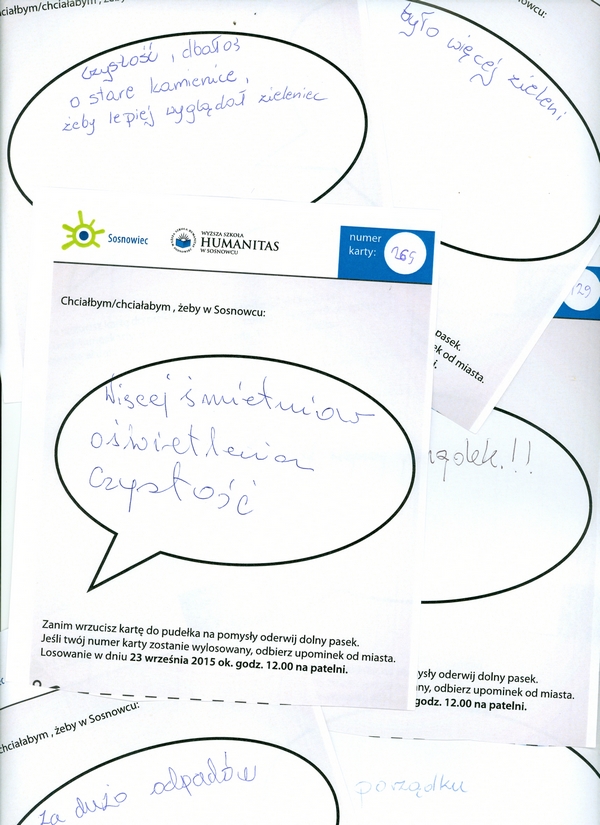 Chciałbym/chciałabym , żeby w Sosnowcu:
czystość, dbałoś
o stare kamienice,
żeby lepiej wyglądał zieleniec
owcu:
było więcej zieleni
pasek.
ek od miasta.
Sosnowiec
WYŻSZA SZKOŁA
HUMANITAS
W SOSNOWCU
numer
karty: 265
Chciałbym/chciałabym , żeby w Sosnowcu:
Więcej śmietniów
oświetlenia
Czystość
Zanim wrzucisz kartę do pudełka na pomysły oderwij dolny pasek.
Jeśli twój numer karty zostanie wylosowany, odbierz upominek od miasta.
Losowanie w dniu 23 września 2015 ok. godz. 12.00 na patelni.
29
ządek.!!
ysły oderwij dolny pasek.
ny, odbierz upominek od miasta.
godz. 12.00 na patelni.
hciałabym , żeby w Sosnowcu:
za dużo odpadów
porządku